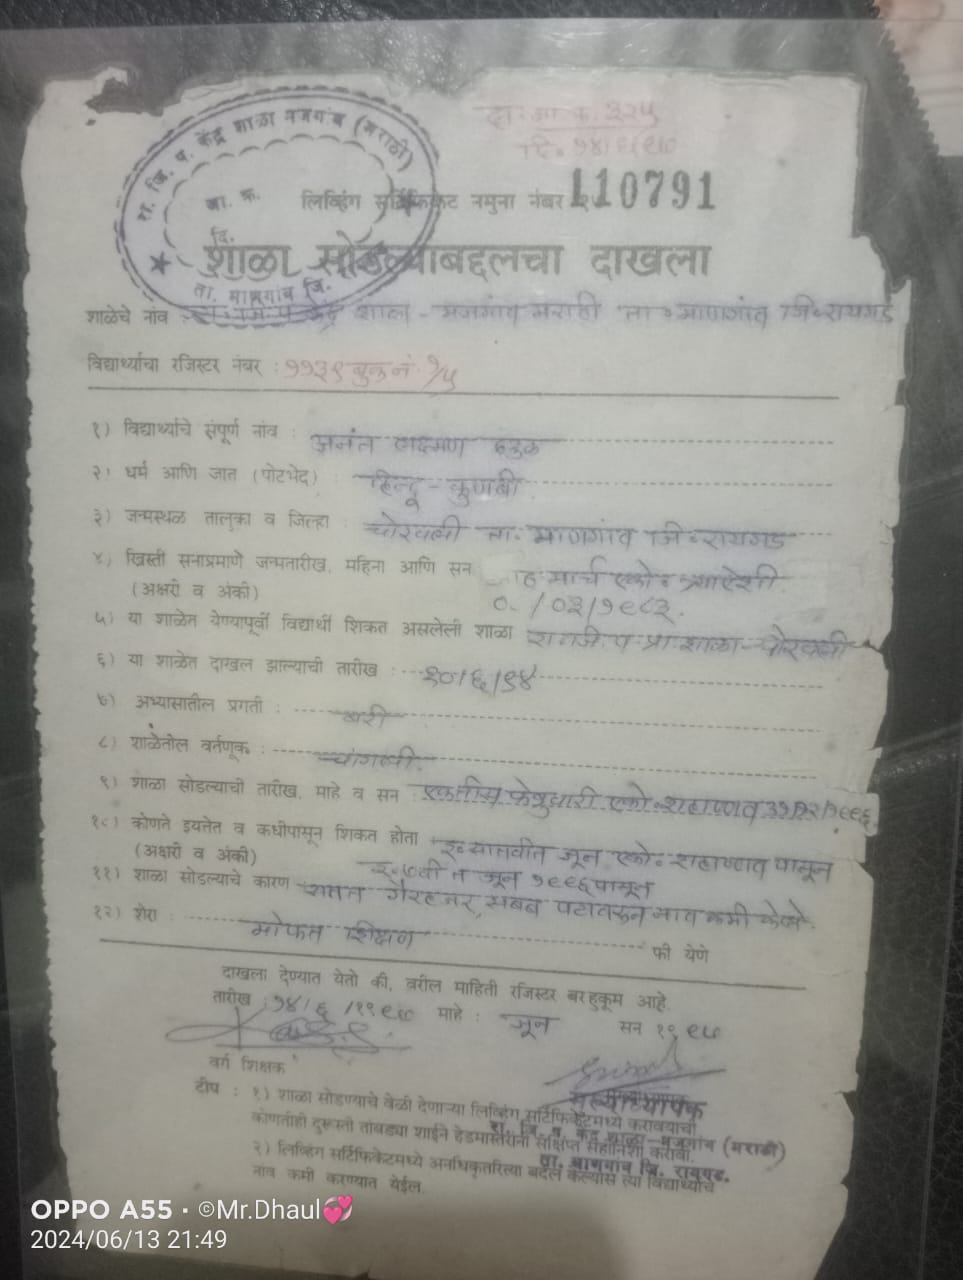 रा. जि. प. केंद्र शाळा मजगांव (मराठी)
जा. क्र.
दि.
ता. माणगांव जि.
दा. जा. क्र. ३२५
दि. १४/६/९७
लिव्हिंग सर्टिफिकेट नमुना नंबर
110791
शाळा सोडल्याबद्दलचा दाखला
शाळेचे नांव : केंद्र शाळा - मजगांव मराठी ता. माणगांव जि. रायगड
विद्यार्थ्यांचा रजिस्टर नंबर : ११३९ बुक नं. १/५
१) विद्यार्थ्याचे संपूर्ण नांव : अनंत लक्ष्मण
२) धर्म आणि जात (पोटभेद) : हिन्दू - कुणबी
३) जन्मस्थळ तालुका व जिल्हा : चोरवली ता. माणगांव जि. रायगड
४) ख्रिस्ती सनाप्रमाणे जन्मतारीख, महिना आणि सन मार्च एकोण त्र्याऐशी
(अक्षरी व अंकी) /०३/१९८३.
५) या शाळेत येण्यापूर्वी विद्यार्थी शिकत असलेली शाळा प्रा. शाळा - चोरवली
६) या शाळेत दाखल झाल्याची तारीख : २०/६/९४
७) अभ्यासातील प्रगती : बरी
८) शाळेतील वर्तणूक : चांगली.
९) शाळा सोडल्याची तारीख, माहे व सन एकतीस फेब्रुवारी एकोण शहाण्णव
१०) कोणते इयत्तेत व कधीपासून शिकत होता इ. सातवीत जून एकोण शहाण्णव पासून
(अक्षरी व अंकी) इ. ७वी त जून १९९६ पासून
११) शाळा सोडल्याचे कारण सतत गैरहजर, सबब पटावरून नाव कमी केले.
१२) शेरा : मोफत शिक्षण फी येणे
दाखला देण्यात येतो की, वरील माहिती रजिस्टर बरहुकूम आहे.
तारीख : १४/६/१९९७ माहे : जून सन १९९७
वर्ग शिक्षक
मुख्याध्यापक
रा. जि. प. केंद्र शाळा-मजगांव (मराठी)
ता. माणगांव जि. रायगड.
टीप : १) शाळा सोडण्याचे वेळी देणाऱ्या लिव्हिंग सर्टिफिकेटमध्ये करावयाची
कोणतीही दुरूस्ती तांबड्या शाईने हेडमास्तरांनी संक्षिप्त सहीनिशी करावी.
२) लिव्हिंग सर्टिफिकेटमध्ये अनधिकृतरित्या बदल केल्यास त्या विद्यार्थ्याचे
नांव कमी करण्यात येईल.
OPPO A55 · ©Mr.Dhaul💞
2024/06/13 21:49